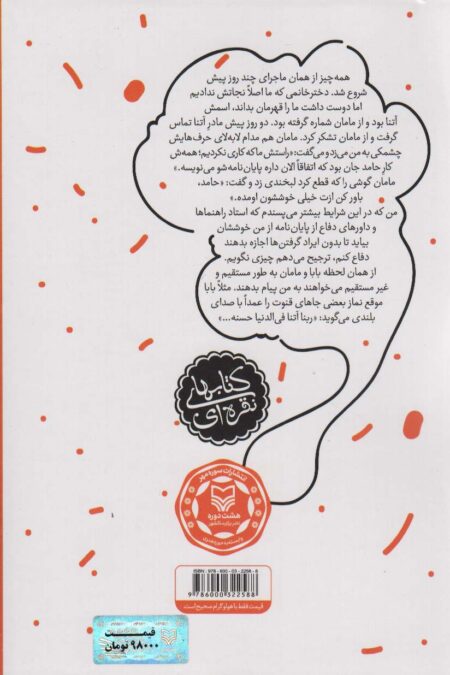 همه‌چیز از همان ماجرای چند روز پیش
شروع شد. دخترخانمی که ما اصلاً نجاتش ندادیم
اما دوست داشت ما را قهرمان بداند، اسمش
آتنا بود و از مامان شماره گرفته بود. دو روز پیش مادر آتنا تماس
گرفت و از مامان تشکر کرد. مامان هم مدام لابه‌لای حرف‌هایش
چشمکی به من می‌زد و می‌گفت: «راستش ما که کاری نکردیم؛ همه‌ش
کار حامد جان بود که اتفاقاً الان داره پایان‌نامه‌شو می‌نویسه.»
مامان گوشی را که قطع کرد لبخندی زد و گفت: «حامد،
باور کن ازت خیلی خوششون اومده.»
من که در این شرایط بیشتر می‌پسندم که استاد راهنماها
و داورهای دفاع از پایان‌نامه از من خوششان
بیاید تا بدون ایراد گرفتن‌ها اجازه بدهند
دفاع کنم، ترجیح می‌دهم چیزی نگویم.
از همان لحظه بابا و مامان به طور مستقیم و
غیر مستقیم می‌خواهند به من پیام بدهند. مثلاً بابا
موقع نماز بعضی جاهای قنوت را عمداً با صدای
بلندی می‌گوید: «ربنا آتنا فی‌الدنیا حسنه...»
کتابهای
نقره‌ای
انتشارات سوره مهر
هشت دوره
ناشر برگزیده کشور
وابسته به حوزه هنری
ISBN: 978-600-03-2258-8
9 786000 322588
قیمت فقط با هولوگرام صحیح است.
قیمت
۹۸۰۰۰ تومان